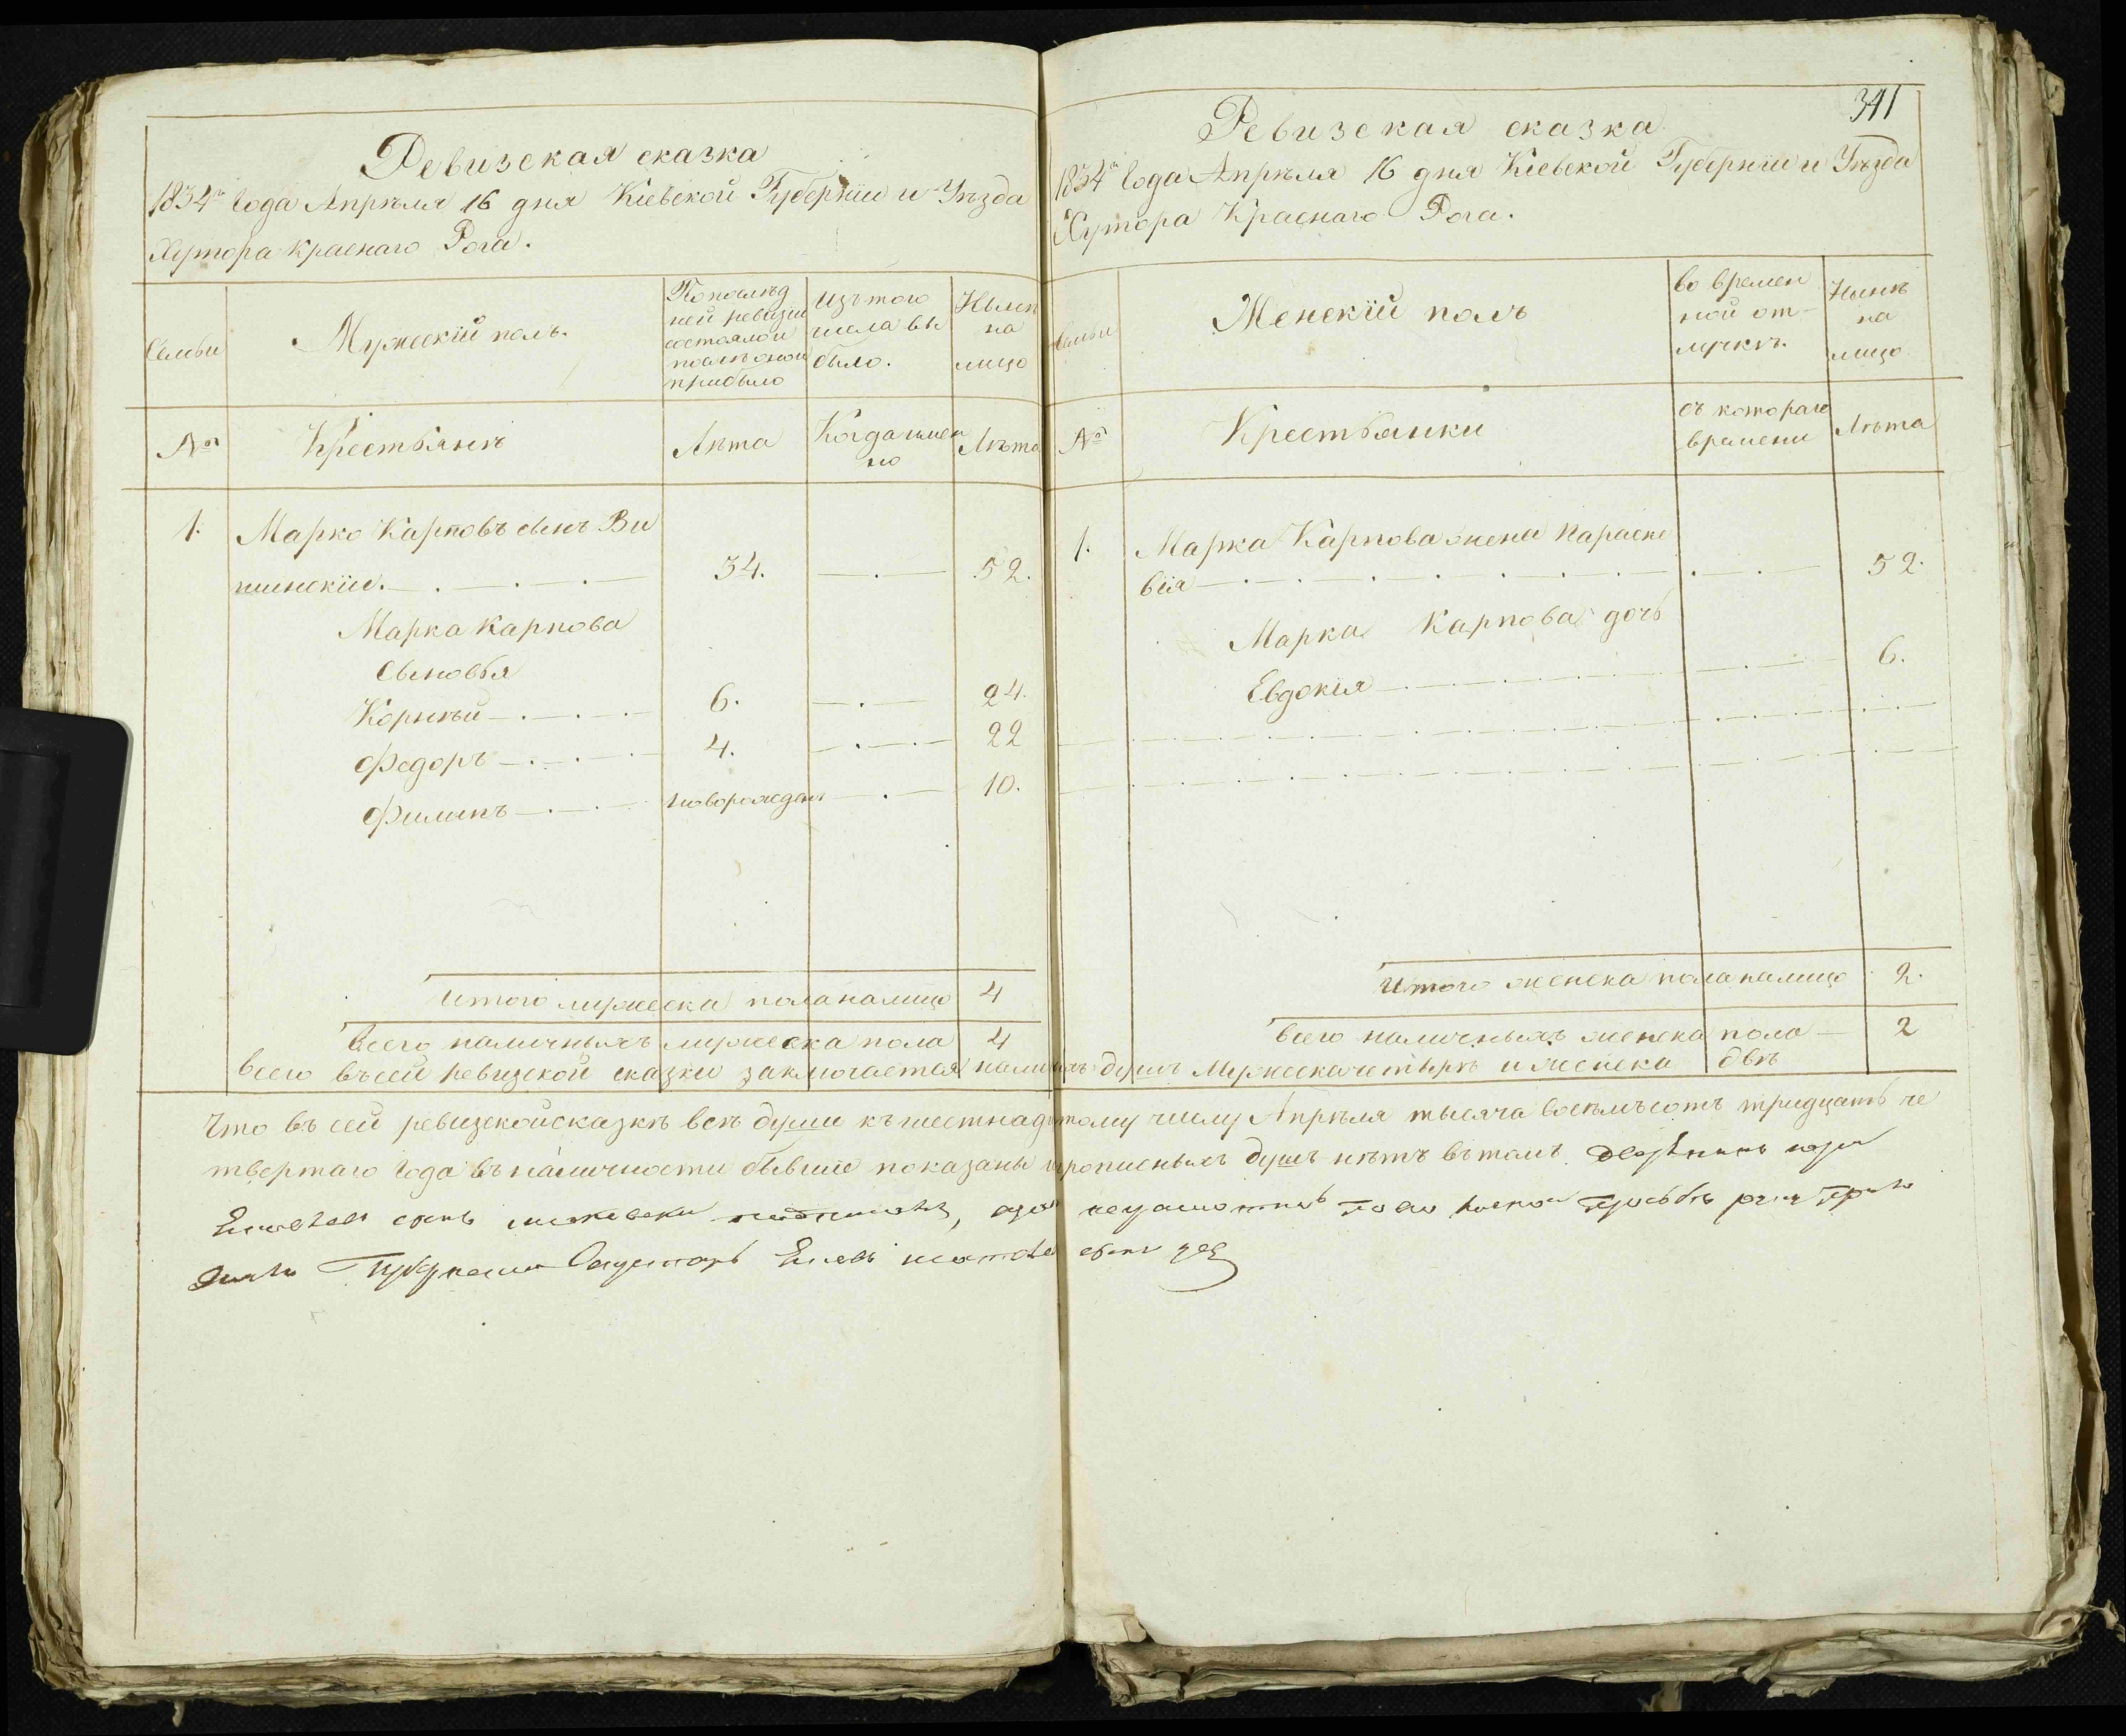 341
Ревизская сказка
1834го Года Апрѣля 16 дня Кіевской Губерніи и Уѣзда
Хутора Краснаго Рога.
Семьи
Мужескій полъ.
По послѣд
ней ревизіи
состояло и
послѣ оной
прибыло
Изъ того
числа вы
было.
Нынѣ
на
лицо
№
Крестьянъ
Лѣта
Когда имен
но
Лѣта
1. Марко Карповъ сынъ Ви
шинскій. 34. 52.
Марка Карпова
Сыновья
Корнѣй 6. 24.
Федоръ 4. 22
Филипъ новорожденъ 10.
Итого мужеска пола налицо 4
Всего наличныхъ мужеска пола 4
Ревизская сказка
1834го Года Апрѣля 16 дня Кіевской Губерніи и Уѣзда
Хутора Краснаго Рога.
Семьи
Женскій полъ
Во времен
ной от-
лучкѣ.
Нынѣ
на
лицо
№
Крестьянки
съ котораго
времени
Лѣта
1. Марка Карпова жена Параске
вія 52.
Марка Карпова дочь
Евдокія 6.
Итого женска пола налицо 2.
Всего наличныхъ женска пола 2
Всего въ сей ревизской сказки заключается душъ Мужеска четырѣ и женска двѣ
Что въ сей ревизской сказкѣ всѣ души къ шестнадцатому числу Апрѣля тысяча восемьсотъ тридцать че
твертаго Года въ наличности бывшіе показаны и прописныхъ душъ нѣтъ въ томъ
сынъ неграмотный по его прозьбѣ
Губернскій